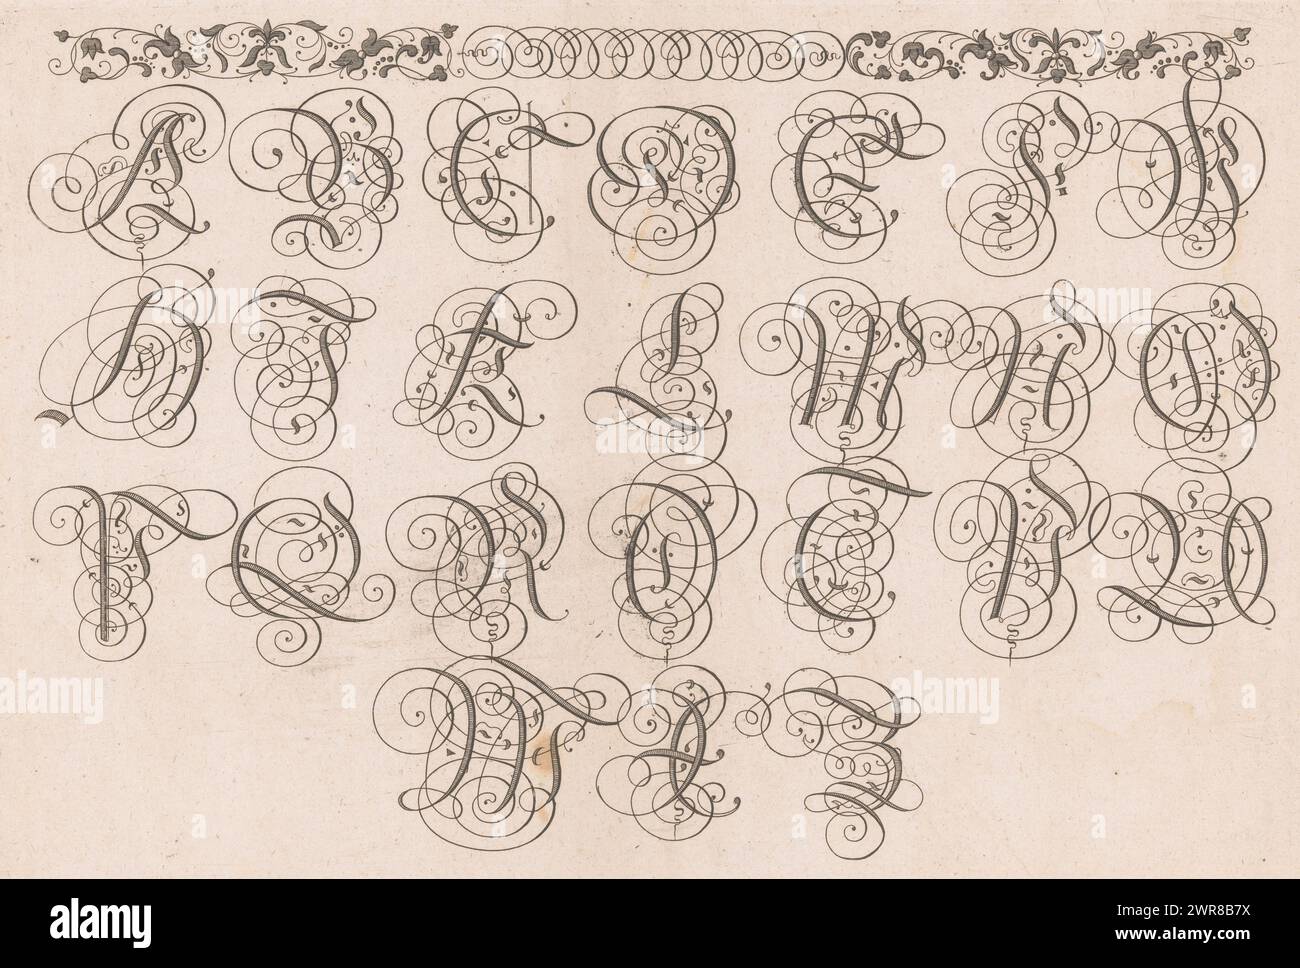 A B C D E F G
H I K L M N O
P Q R S T V U
W X Z
alamy
Image ID: 2WR8B7X
www.alamy.com